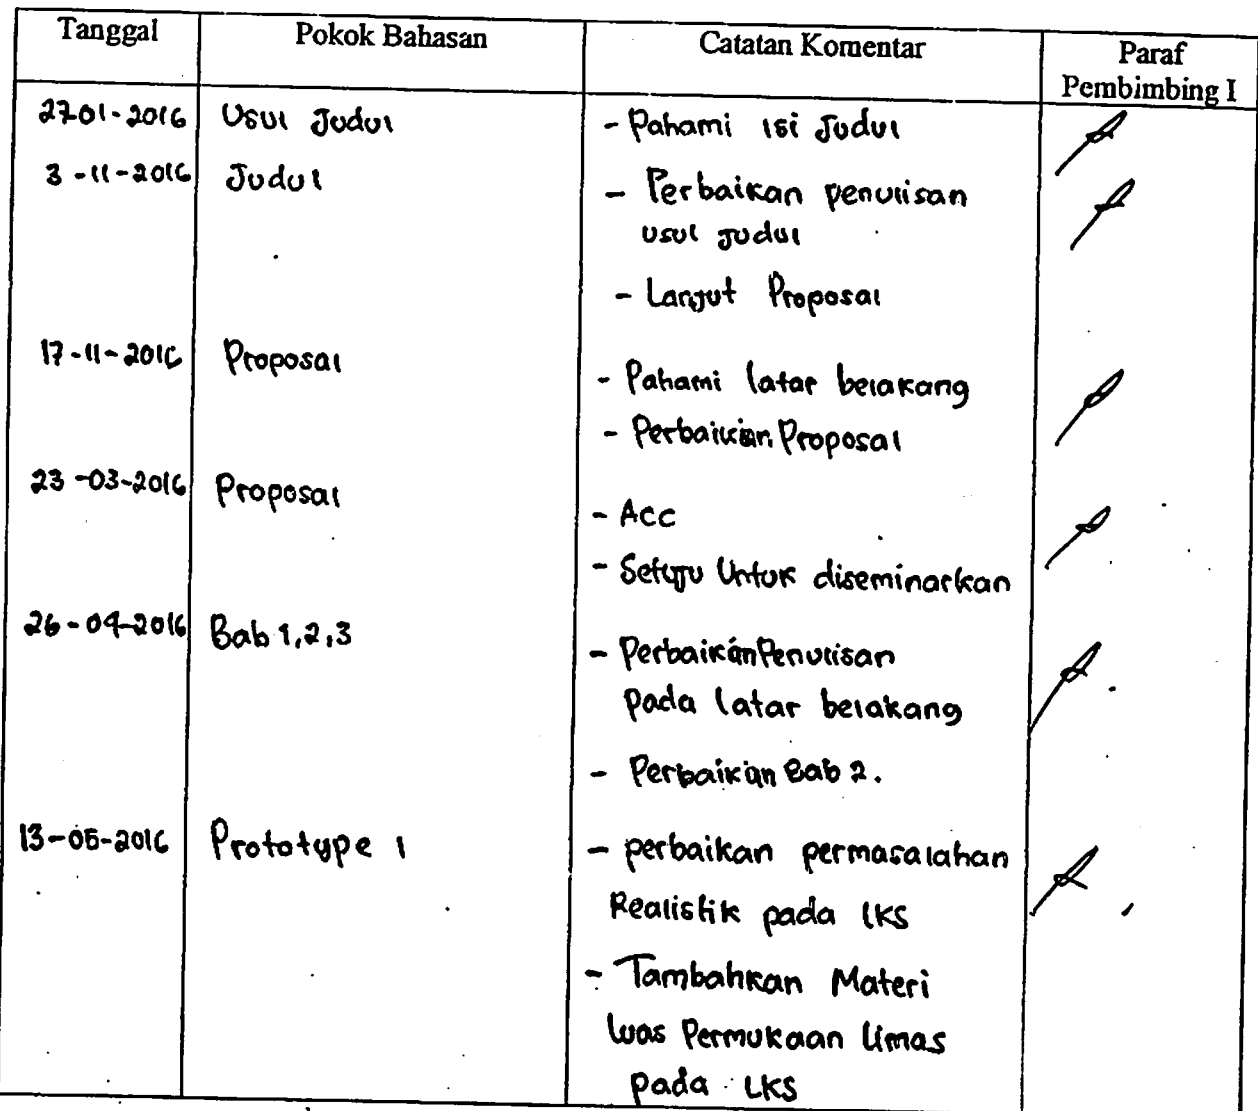 Tanggal Pokok Bahasan Catatan Komentar Paraf
Pembimbing I
27-01-2016 Usul Judul - Pahami isi Judul
3-11-2016 Judul - Perbaikan penulisan
usul judul
- Lanjut Proposal
17-11-2016 Proposal - Pahami latar belakang
- Perbaikan Proposal
23-03-2016 Proposal - Acc
- Setuju Untuk diseminarkan
26-04-2016 Bab 1,2,3 - Perbaikan Penulisan
pada latar belakang
- Perbaikan Bab 2.
13-05-2016 Prototype 1 - perbaikan permasalahan
Realistik pada LKS
- Tambahkan Materi
Luas Permukaan Limas
pada LKS